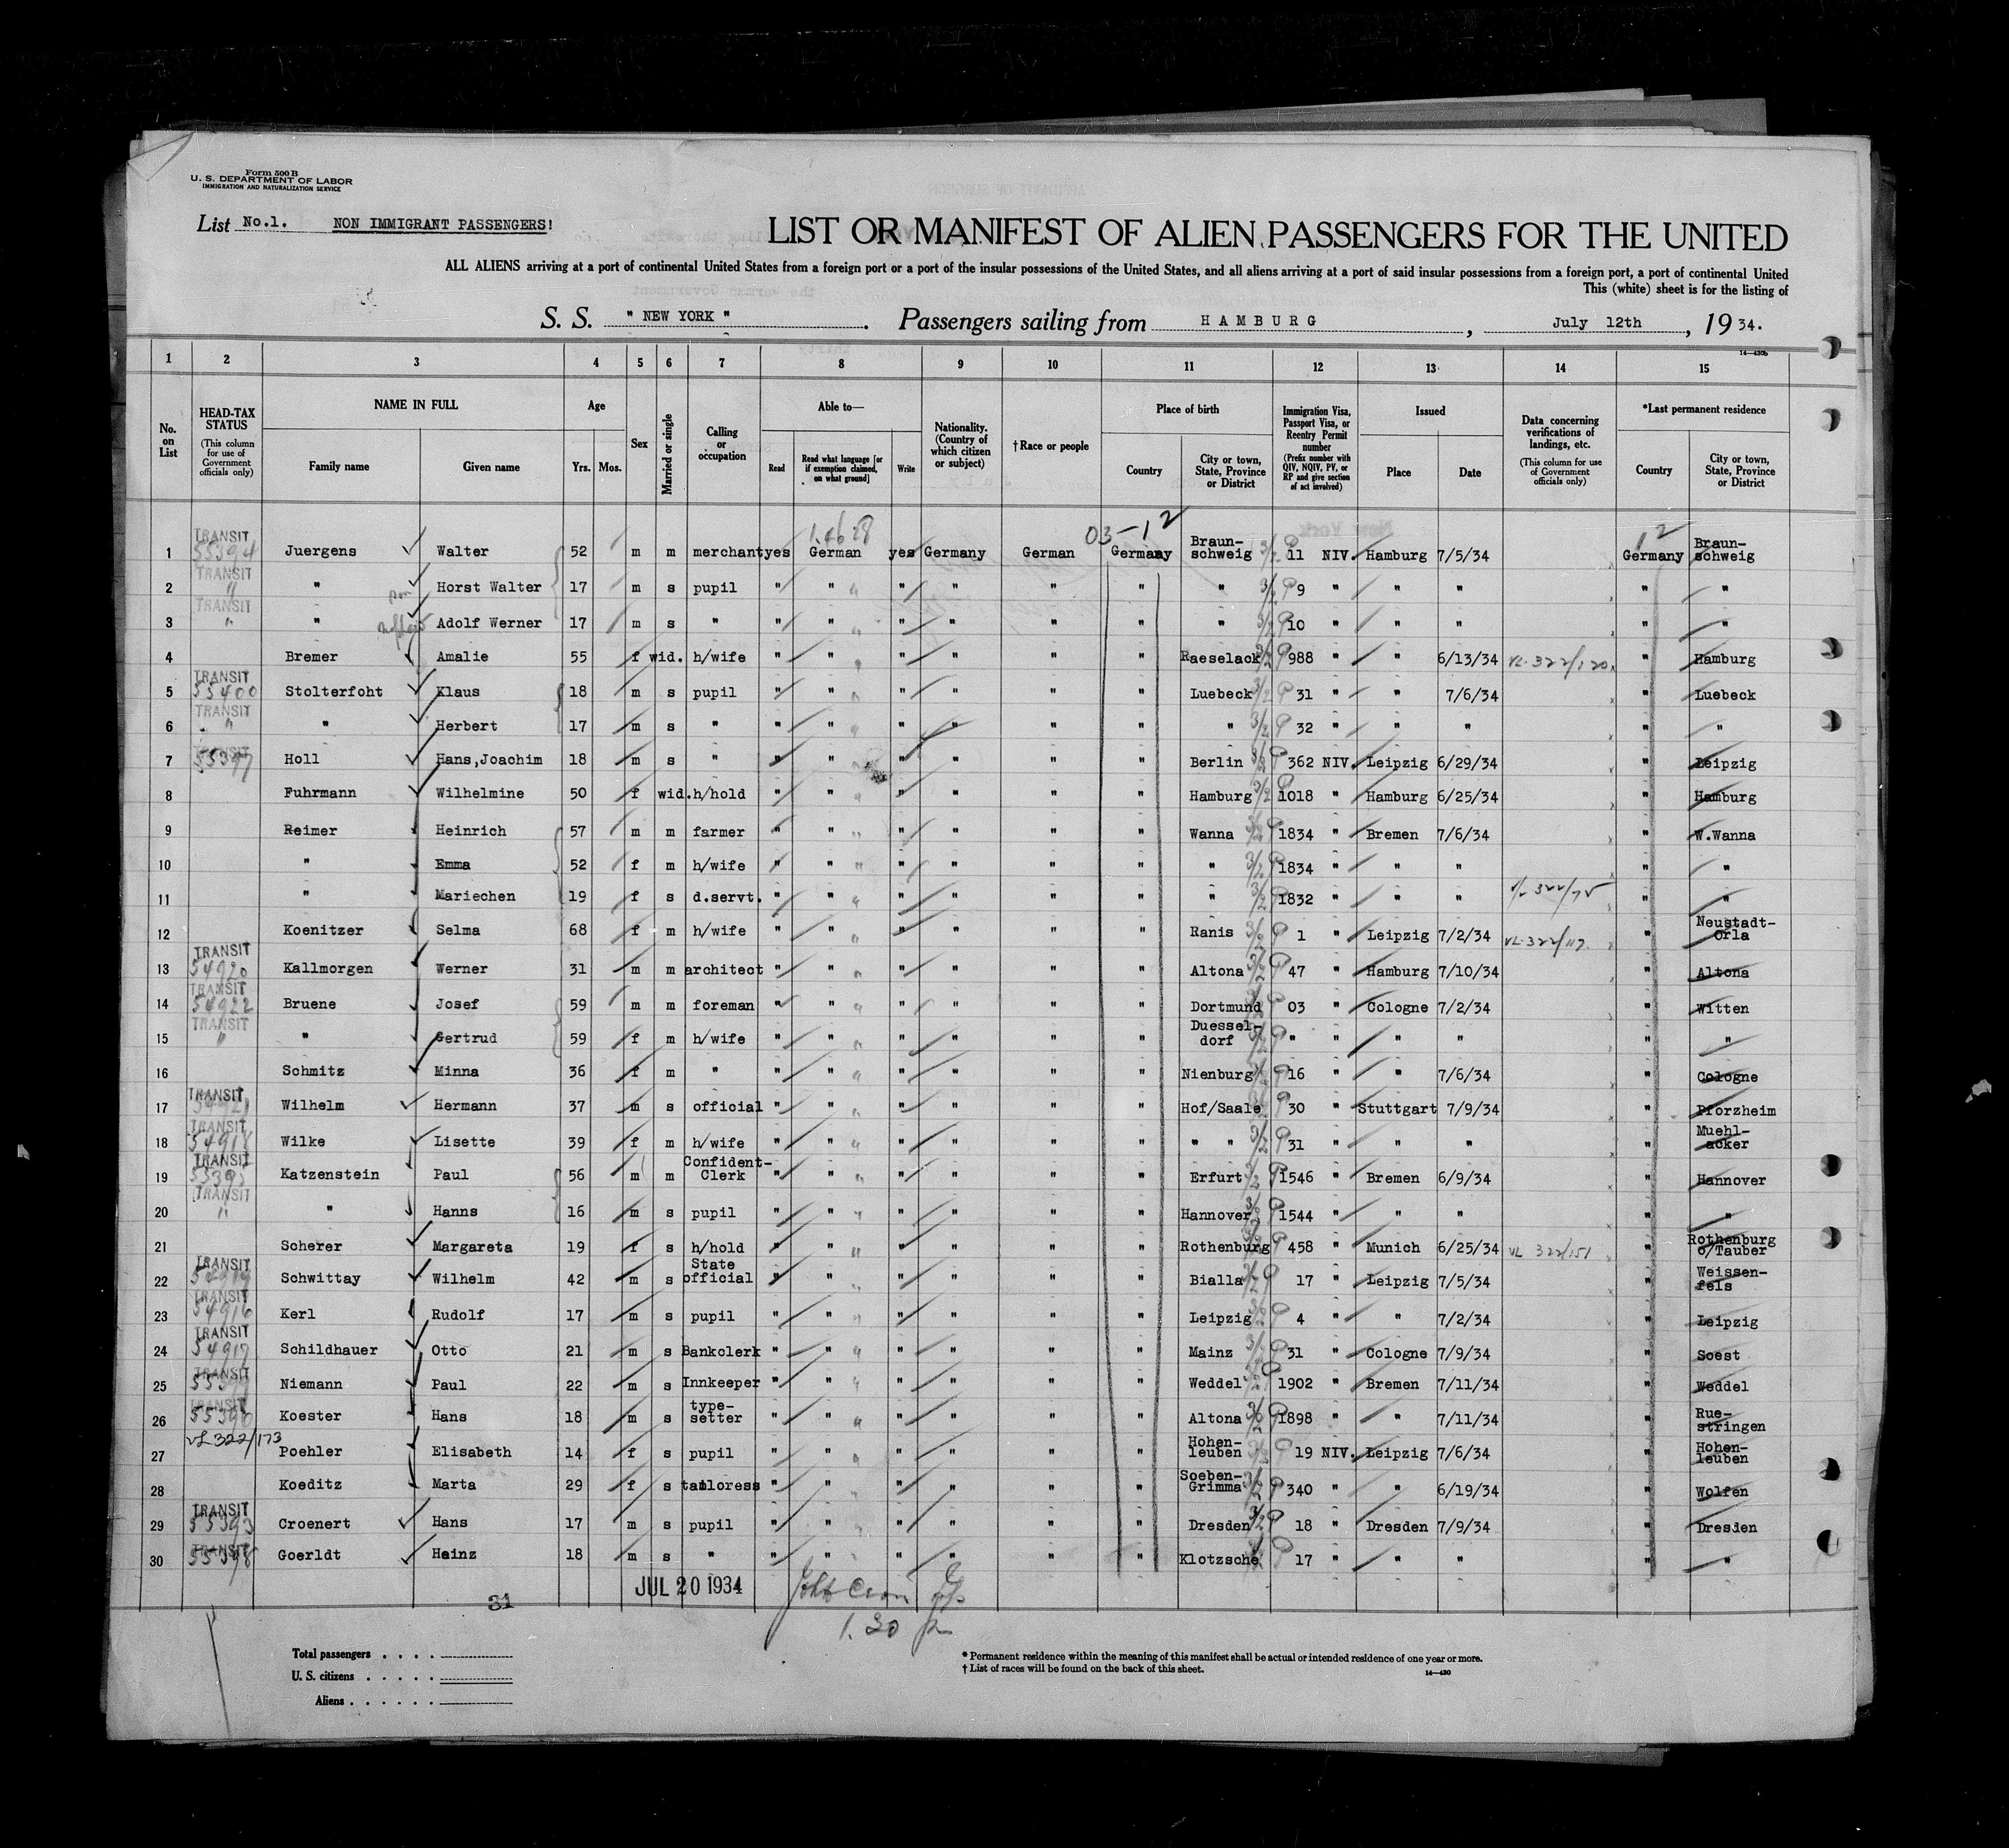 Form 500 B
U. S. DEPARTMENT OF LABOR
IMMIGRATION AND NATURALIZATION SERVICE
List No.1. NON IMMIGRANT PASSENGERS!
LIST OR MANIFEST OF ALIEN PASSENGERS FOR THE UNITED
ALL ALIENS arriving at a port of continental United States from a foreign port or a port of the insular possessions of the United States, and all aliens arriving at a port of said insular possessions from a foreign port, a port of continental United
This (white) sheet is for the listing of
S. S. " NEW YORK " . Passengers sailing from HAMBURG , July 12th , 19 34.
14—430b
1 2 3 4 5 6 7 8 9 10 11 12 13 14 15
No. on List
HEAD-TAX STATUS (This column for use of Government officials only)
NAME IN FULL
Family name Given name
Age
Yrs. Mos.
Sex
Married or single
Calling or occupation
Able to—
Read
Read what language [or if exemption claimed, on what ground]
Write
Nationality. (Country of which citizen or subject)
†Race or people
Place of birth
Country
City or town, State, Province or District
Immigration Visa, Passport Visa, or Reentry Permit number (Prefix number with QIV, NQIV, PV, or RP and give section of act involved)
Issued
Place Date
Data concerning verifications of landings, etc. (This column for use of Government officials only)
*Last permanent residence
Country
City or town, State, Province or District
03-12 12
1 TRANSIT 55394 Juergens Walter 52 m m merchant yes German yes Germany German Germany Braun-schweig 3/2 P 11 NIV. Hamburg 7/5/34 Germany Braun-schweig
2 TRANSIT " " Horst Walter 17 m s pupil " " " " " " " 3/2 P 9 " " " " "
3 TRANSIT " " Adolf Werner 17 m s " " " " " " " " 3/2 P 10 " " " " "
4 Bremer Amalie 55 f wid. h/wife " " " " " " Raeselack 3/2 P 988 " " 6/13/34 VL-322/120 " Hamburg
5 TRANSIT 55400 Stolterfoht Klaus 18 m s pupil " " " " " " Luebeck 3/2 P 31 " " 7/6/34 " Luebeck
6 TRANSIT " " Herbert 17 m s " " " " " " " " 3/2 P 32 " " " " "
7 TRANSIT 55397 Holl Hans,Joachim 18 m s " " " " " " " Berlin 3/2 P 362 NIV. Leipzig 6/29/34 " Leipzig
8 Fuhrmann Wilhelmine 50 f wid. h/hold " " " " " " Hamburg 3/2 P 1018 " Hamburg 6/25/34 " Hamburg
9 Reimer Heinrich 57 m m farmer " " " " " " Wanna 3/2 P 1834 " Bremen 7/6/34 " W.Wanna
10 " Emma 52 f m h/wife " " " " " " " 3/2 P 1834 " " " " "
11 " Mariechen 19 f s d.servt. " " " " " " " 3/2 P 1832 " " " VL 322/75 " "
12 Koenitzer Selma 68 f m h/wife " " " " " " Ranis 3/2 P 1 " Leipzig 7/2/34 VL-322/117 " Neustadt-Orla
13 TRANSIT 54920 Kallmorgen Werner 31 m m architect " " " " " " Altona 3/2 P 47 " Hamburg 7/10/34 " Altona
14 TRANSIT 54922 Bruene Josef 59 m m foreman " " " " " " Dortmund 3/2 P 03 " Cologne 7/2/34 " Witten
15 TRANSIT " " Gertrud 59 f m h/wife " " " " " " Duessel-dorf 3/2 P " " " " " "
16 Schmitz Minna 36 f m " " " " " " " Nienburg 3/2 P 16 " " 7/6/34 " Cologne
17 TRANSIT 54921 Wilhelm Hermann 37 m s official " " " " " " Hof/Saale 3/2 P 30 " Stuttgart 7/9/34 " Pforzheim
18 TRANSIT 54918 Wilke Lisette 39 f m h/wife " " " " " " " " 3/2 P 31 " " " " Muehl-acker
19 TRANSIT Katzenstein Paul 56 m m Confident-Clerk " " " " " " Erfurt 3/2 P 1546 " Bremen 6/9/34 " Hannover
20 TRANSIT " " Hanns 16 m s pupil " " " " " " Hannover 3/2 P 1544 " " " " "
21 Scherer Margareta 19 f s h/hold " " " " " " Rothenburg 3/2 P 458 " Munich 6/25/34 VL 322/151 " Rothenburg o/Tauber
22 TRANSIT 54919 Schwittay Wilhelm 42 m s State official " " " " " " Bialla 3/2 P 17 " Leipzig 7/5/34 " Weissen-fels
23 TRANSIT 54916 Kerl Rudolf 17 m s pupil " " " " " " Leipzig 3/2 P 4 " " 7/2/34 " Leipzig
24 TRANSIT 54917 Schildhauer Otto 21 m s Bankclerk " " " " " " Mainz 3/2 P 31 " Cologne 7/9/34 " Soest
25 TRANSIT Niemann Paul 22 m s Innkeeper " " " " " " Weddel 3/2 P 1902 " Bremen 7/11/34 " Weddel
26 TRANSIT 55396 Koester Hans 18 m s type-setter " " " " " " Altona 3/2 P 1898 " " 7/11/34 " Rue-stringen
27 VL322/173 Poehler Elisabeth 14 f s pupil " " " " " " Hohen-leuben 3/2 P 19 NIV. Leipzig 7/6/34 " Hohen-leuben
28 Koeditz Marta 29 f s tailoress " " " " " " Soeben-Grimma 3/2 P 340 " " 6/19/34 " Wolfen
29 TRANSIT 55393 Croenert Hans 17 m s pupil " " " " " " Dresden 3/2 P 18 " Dresden 7/9/34 " Dresden
30 TRANSIT 55398 Goerldt Heinz 18 m s " " " " " " " Klotzsche 3/2 P 17 " " " " "
31
JUL 20 1934
1.30
Total passengers
U. S. citizens
Aliens
* Permanent residence within the meaning of this manifest shall be actual or intended residence of one year or more.
† List of races will be found on the back of this sheet.
14—430